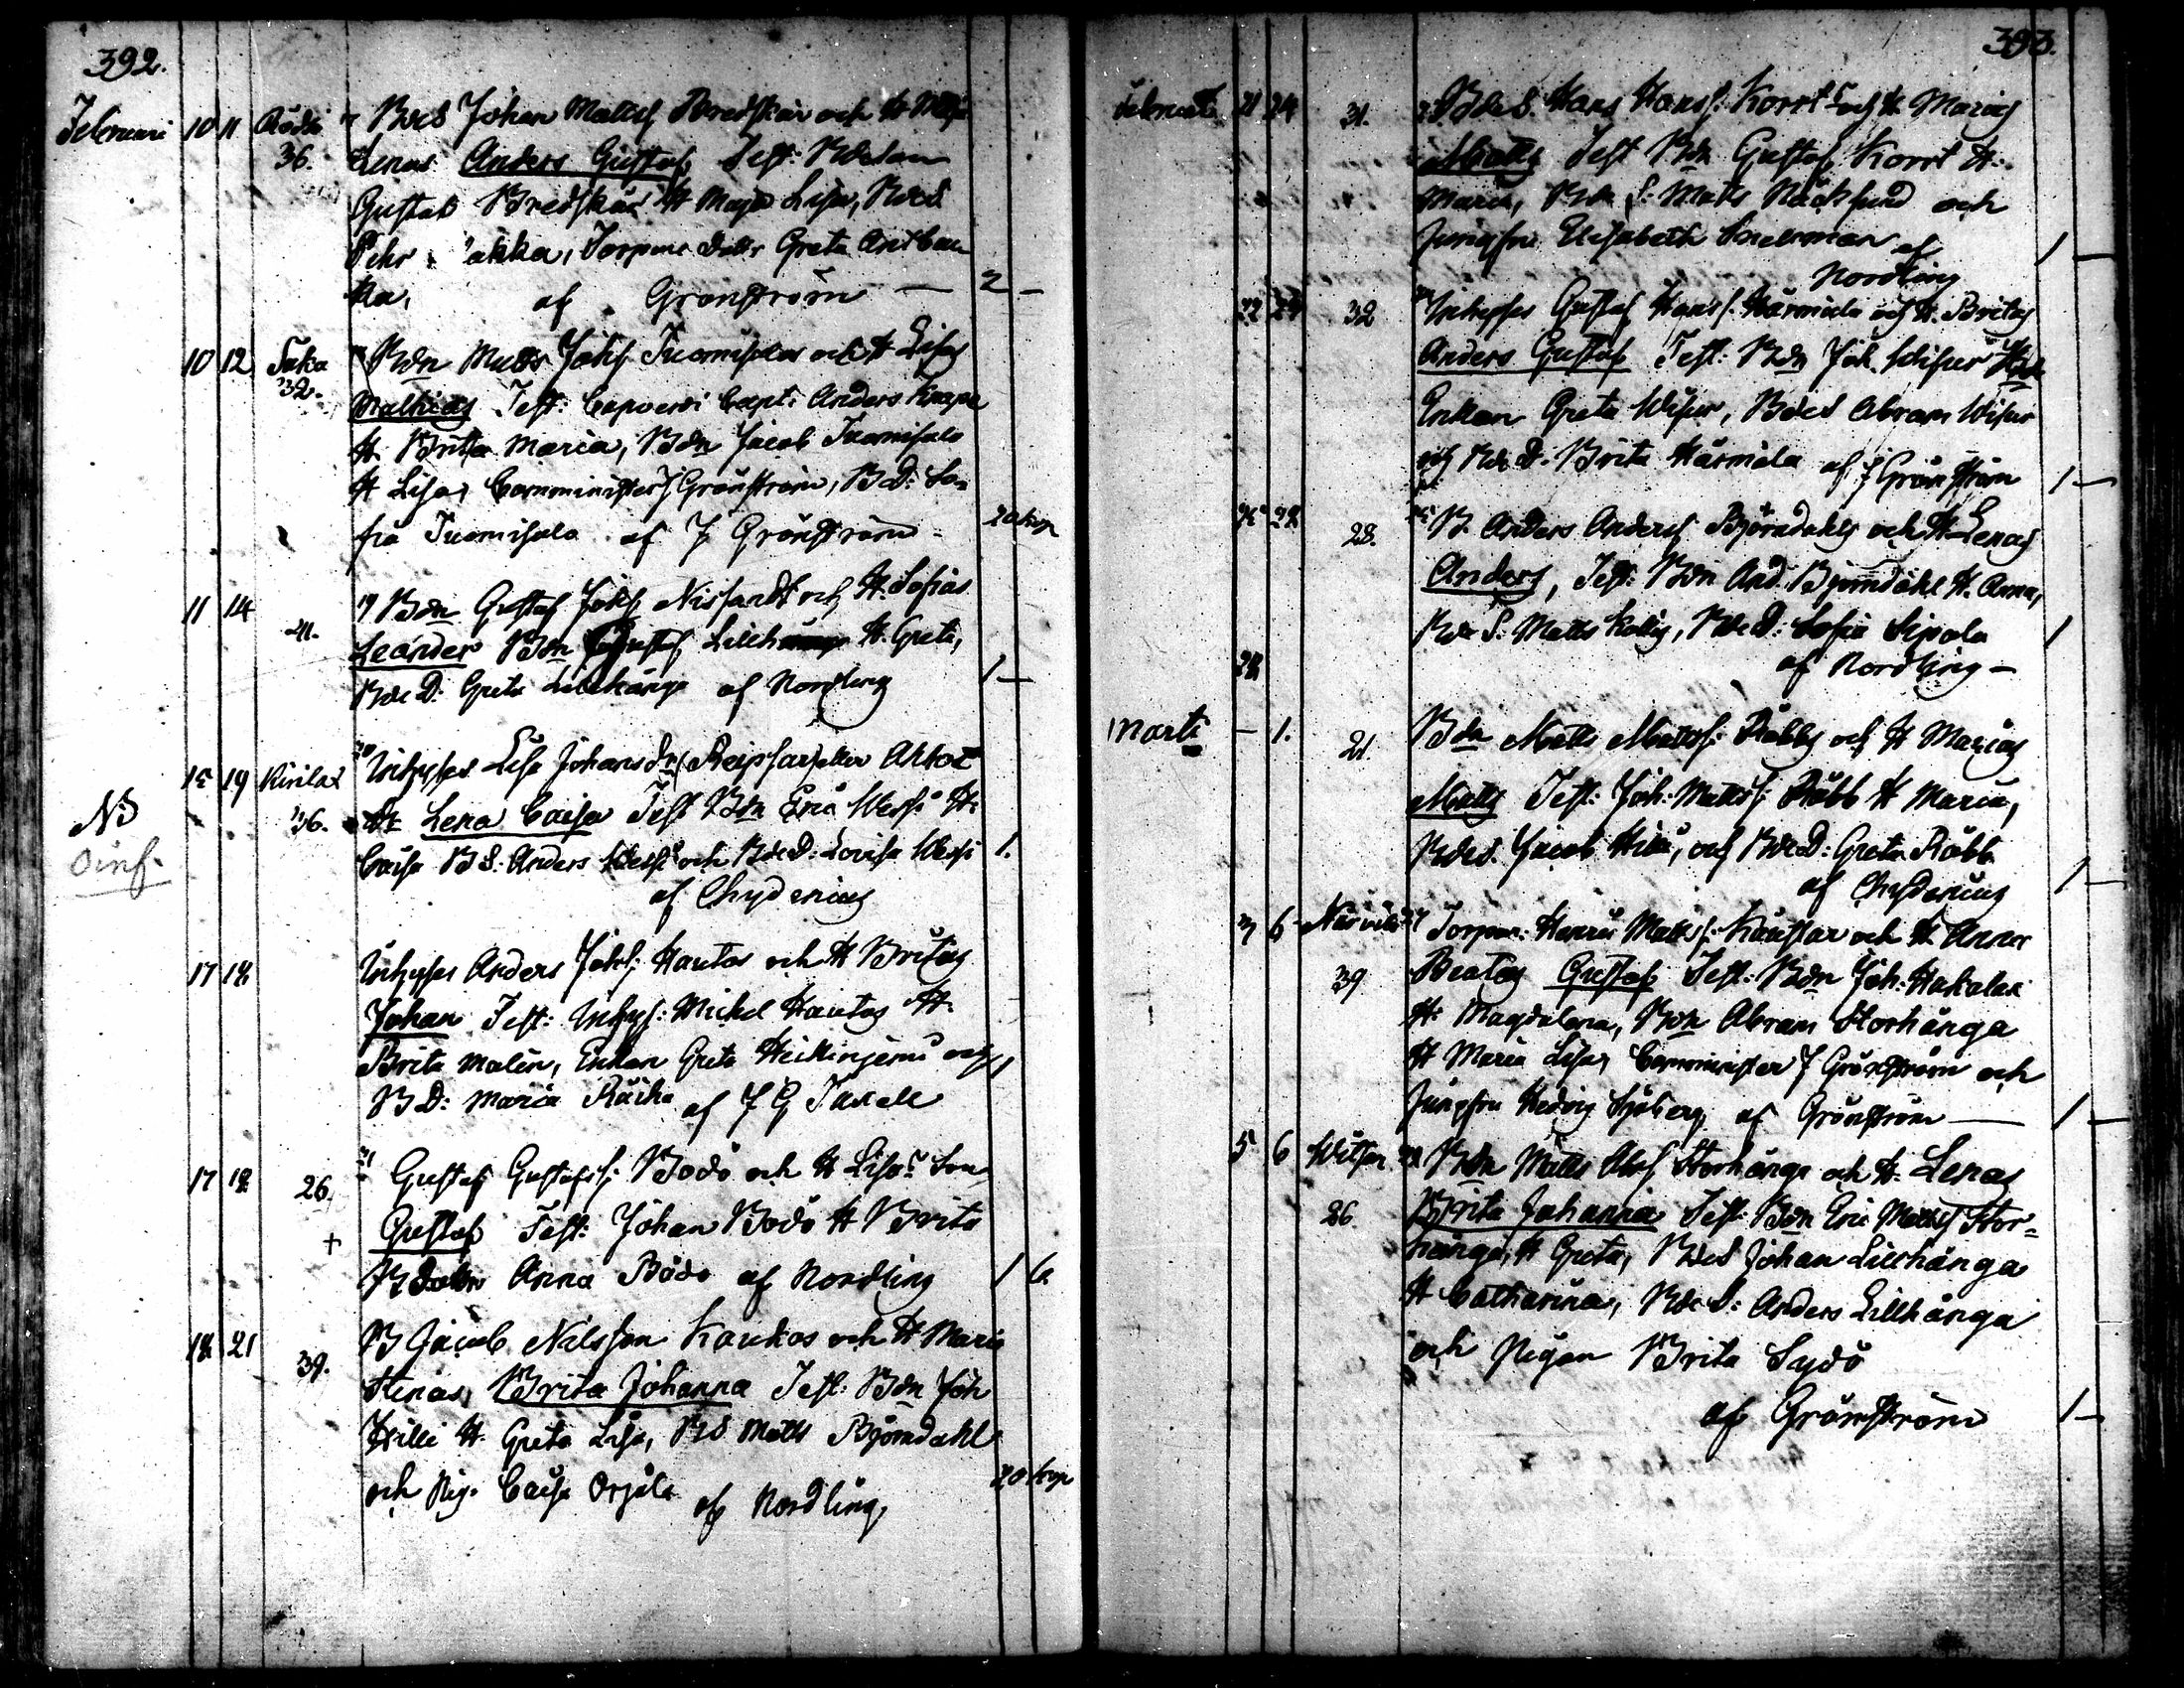 392.
Februari 10 11 Rödsö BdeS Johan Mattss Bredskär och H Maja
36. Lenas Anders Gustaf Test: Bdesson
Gustaf Bredskär H Maja Lisa, BdeS
Pehr akka, Torpare Dottr Greta Antbac
ka, af Grönström — 2 —
10 12 Såka Bdn Matts Johss Tuomisalos och H Lisas
32. Mathias Test: Capverdi Capt: Anders Knape
H. Britta Maria, Bdn Jacob Tuomisalo
H Lisa, Comminister J Grönström, BD: So-
fia Tuomisalo af J Grönström 20 kop
11 14 19 Bdn Gustaf Johss Nissandt och H. Sofias
21. Leander Bdn Gustaf Lillhånga H. Greta,
BdeD: Greta Lillhånga af Nordling 1 —
15 19 Kivilax Inhyses Lisa Johansdr (Reipsar) eller Ahlot
36. Dr Lena Caisa Test Bdn Eric Wessi H:
NB
Oinf.
Caisa BS: Anders Wessi och BdeD: Lovisa Wessi 1.
af Chydenius
17 18 Inhyses Anders Johss Hautas och H Britas
Johan Test: Inhys: Mickel Hautas H:
Brita Malin, Enkan Greta Heikkinjemi och 1
BD: Maria Räihä af J G Taxell
17 18 26. 21 Gustaf Gustafss: Bodö och H Lisas Son
+ Gustaf Test: Johan Bodö H Brita
BDottr Anna Bodö af Nordling 1 6
18 21 B Jacob Nilsson Kaukos och H Maria
39. Stinas, Brita Johanna Test: Bdn Joh
Hilli H. Greta Lisa, BdS Matts Björndahl
och Pig. Caisa Orjala af Nordling, 20 kop
393.
Februarii 21 24 31. BdeS. Hans Hanss: Korrts och H Marias
Matts Test Bdn Gustaf Korrt H.
Maria, Bde S: Matts Näcksund och
Jungfru Elisabeth Snellman af 1 —
Nordling
22 24 32 Inhyses Gustaf Hanss. Härmälä och H. Britas
Anders Gustaf Test: Bdn Joh. Wiser
Enkan Greta Wiser, BdeS Abram Wiser
och BdeD. Brita Härmälä af J Grönström 1 —
25 28 28. B. Anders Anderss Björndahls och H Lenas
Anders, Test: Bdn And. Björndahl H. Anna,
Bde S: Matts Kallis, BdeD: Sofia Sipola 1
28 af Nordling —
Marti — 1. 21. Bdn Matts Mattss: Råbbs och H Marias
Matts Test: Joh: Mattss: Råbb H Maria,
BdeS. Jacob Hilli, och BdeD: Greta Råbb
af Chydenius 1 —
3 6 Närvilä Torpar. Henric Mattss: Kaustar och H. Anna
39 Beatas Gustaf Test: Bdn Joh: Hakalax
H: Magdalena, Bdn Abram Storhånga
H Maria Lisa, Comminister J Grönström och
Jungfru Hedvig Sjöberg af Grönström — 1 —
5 6 Witsar Bdn Matts Abrss Storhånga och H. Lenas
26 Brita Johanna Test Bdn Eric Mattss Stor-
hånga, H Greta, BdeS Johan Lillhånga
H Catharina, Bde S: Anders Lillhånga
och Pigan Brita Sydö
af Grönström 1 —